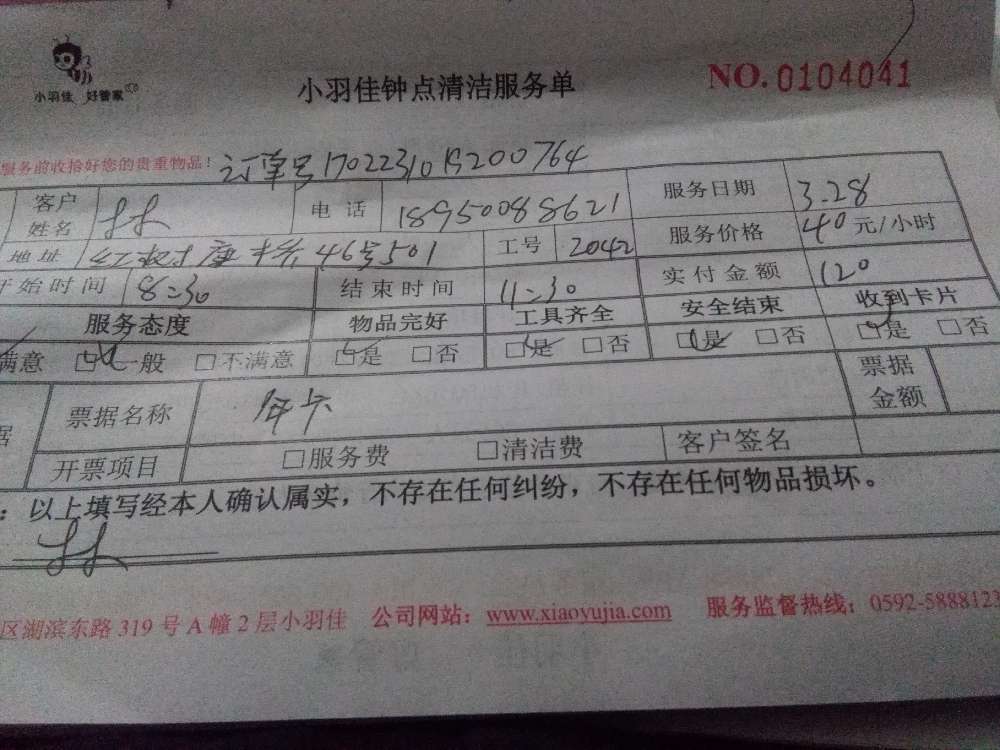 小羽佳 好管家
小羽佳钟点清洁服务单
NO. 0104041
服务前收拾好您的贵重物品！ 订单号 17022310192007 64
客户姓名 林 电话 18950088621 服务日期 3.28
地址 46号501 工号 2042 服务价格 40元/小时
开始时间 8:30 结束时间 11:30 实付金额 120
服务态度 物品完好 工具齐全 安全结束 收到卡片
满意 □一般 □不满意 □是 □否 □是 □否 □是 □否 □是 □否
据 票据名称 年卡 票据金额
开票项目 □服务费 □清洁费 客户签名
：以上填写经本人确认属实，不存在任何纠纷，不存在任何物品损坏。
林
区湖滨东路 319 号 A 幢 2 层小羽佳 公司网站：www.xiaoyujia.com 服务监督热线：0592-5888123